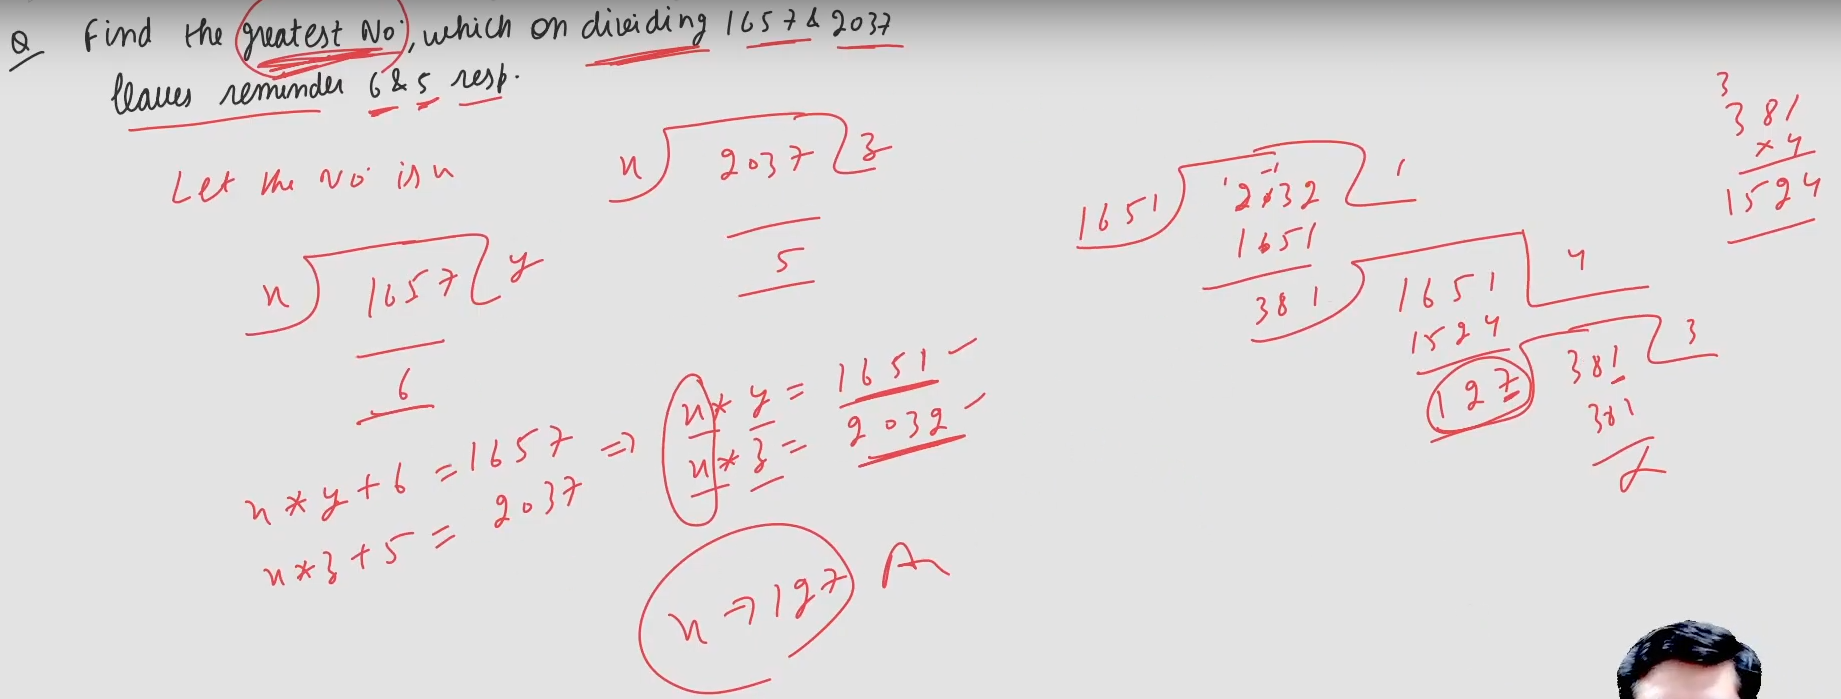 Q Find the greatest No, which on dividing 1657 & 2037
leaves reminder 6 & 5 resp.
Let the No is n
n) 2037 ( z
5
n) 1657 ( y
6
n * y + 6 = 1657 => n * y = 1651
n * z + 5 = 2037 n * z = 2032
n → 127 A
1651) 2032 ( 1
1651
381) 1651 ( 4
1524
127) 381 ( 3
381
3
381
x 4
1524